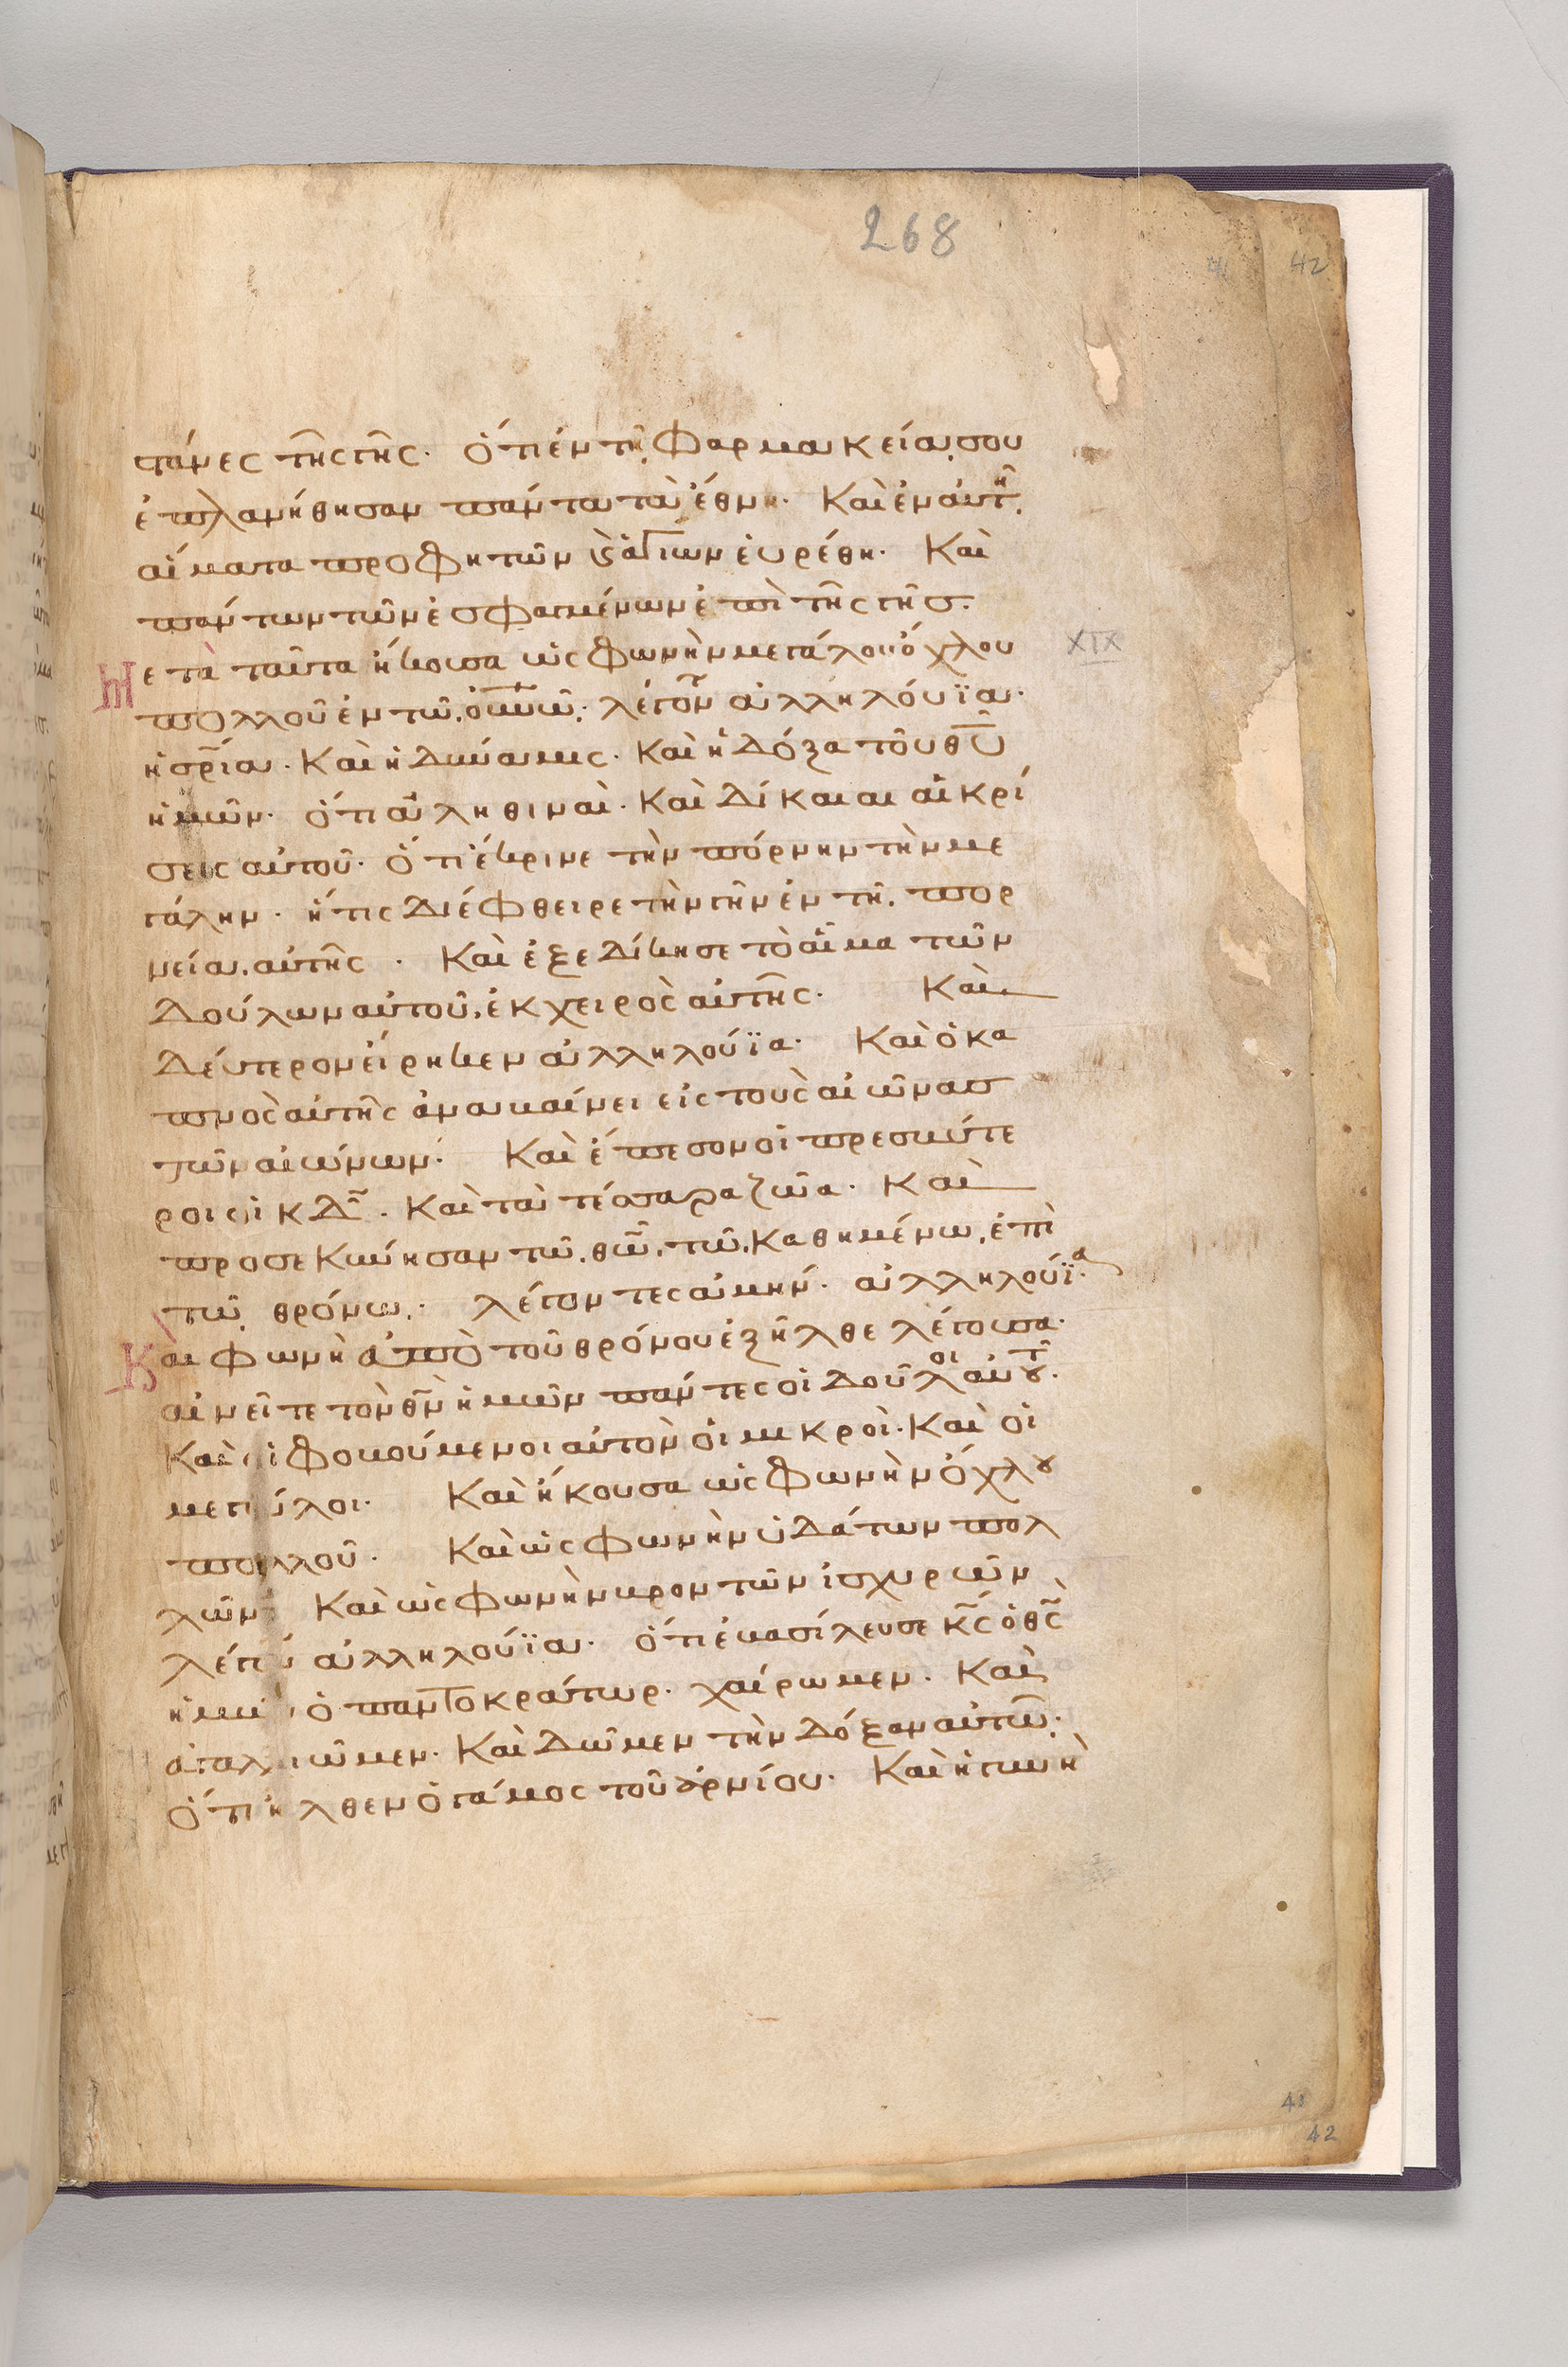 268
41 42
τάνες τῆς γῆς· ὅτι ἐν τῆ φαρμακεία σου
ἐπλανήθησαν πάντα τὰ ἔθνη· Καὶ ἐν αὐτῆ
αἵματα προφητῶν ϗ ἁγίων εὑρέθη· Καὶ
πάντων τῶν ἐσφαγμένων ἐπὶ τῆς γῆς.
XIX
Μετὰ ταῦτα ἤκουσα ὡς φωνὴν μεγάλου ὄχλου
πολλοῦ ἐν τῶ οὐνῶ· λεγόντ ἀλληλούϊα·
ἡ σρία· Καὶ ἡ δύναμις· Καὶ ἡ δόξα τοῦ θῦ
ἡμῶν· ὅτι ἀληθιναὶ· Καὶ δίκαιαι αἱ κρί
σεις αὐτοῦ· ὅτι ἔκρινε τὴν πόρνην τὴν με
γάλην· ἥτις διέφθειρε τὴν γῆν ἐν τῆ πορ
νεία αὐτῆς· Καὶ ἐξεδίκησε τὸ αἷμα τῶν
δούλων αὐτοῦ, ἐκ χειρὸς αὐτῆς· Καὶ
δεύτερον εἴρηκεν ἀλληλούϊα· Καὶ ὁ κα
πνὸς αὐτῆς ἀναβαίνει εἰς τοὺς αἰῶνας
τῶν αἰώνων· Καὶ ἔπεσον οἱ πρεσβύτε
ροι οἱ κδ· Καὶ τὰ τέσσαρα ζῶα· Καὶ
προσεκύνησαν τῶ θῶ, τῶ καθημένω ἐπὶ
τῶ θρόνω· λέγοντες ἀμήν· ἀλληλούϊα·
Καὶ φωνὴ ἀπὸ τοῦ θρόνου ἐξῆλθε λέγουσα·
αἰνεῖτε τὸν θν ἡμῶν πάντες οἱ δοῦλοι αὐτοῦ·
Καὶ οἱ φοβούμενοι αὐτὸν οἱ μικροὶ· Καὶ οἱ
μεγάλοι· Καὶ ἤκουσα ὡς φωνὴν ὄχλου
πολλοῦ· Καὶ ὡς φωνὴν ὑδάτων πολ
λῶν· Καὶ ὡς φωνὴν βροντῶν ἰσχυρῶν
ἀλληλούϊα· ὅτι ἐβασίλευσε κς ὁ θς
ἡμῶν ὁ παντοκράτωρ· χαίρωμεν· Καὶ
ἀγαλλιῶμεν· Καὶ δῶμεν τὴν δόξαν αὐτῶ·
ὅτι ἦλθεν ὁ γάμος τοῦ ἀρνίου· Καὶ ἡ γυνὴ
41
42